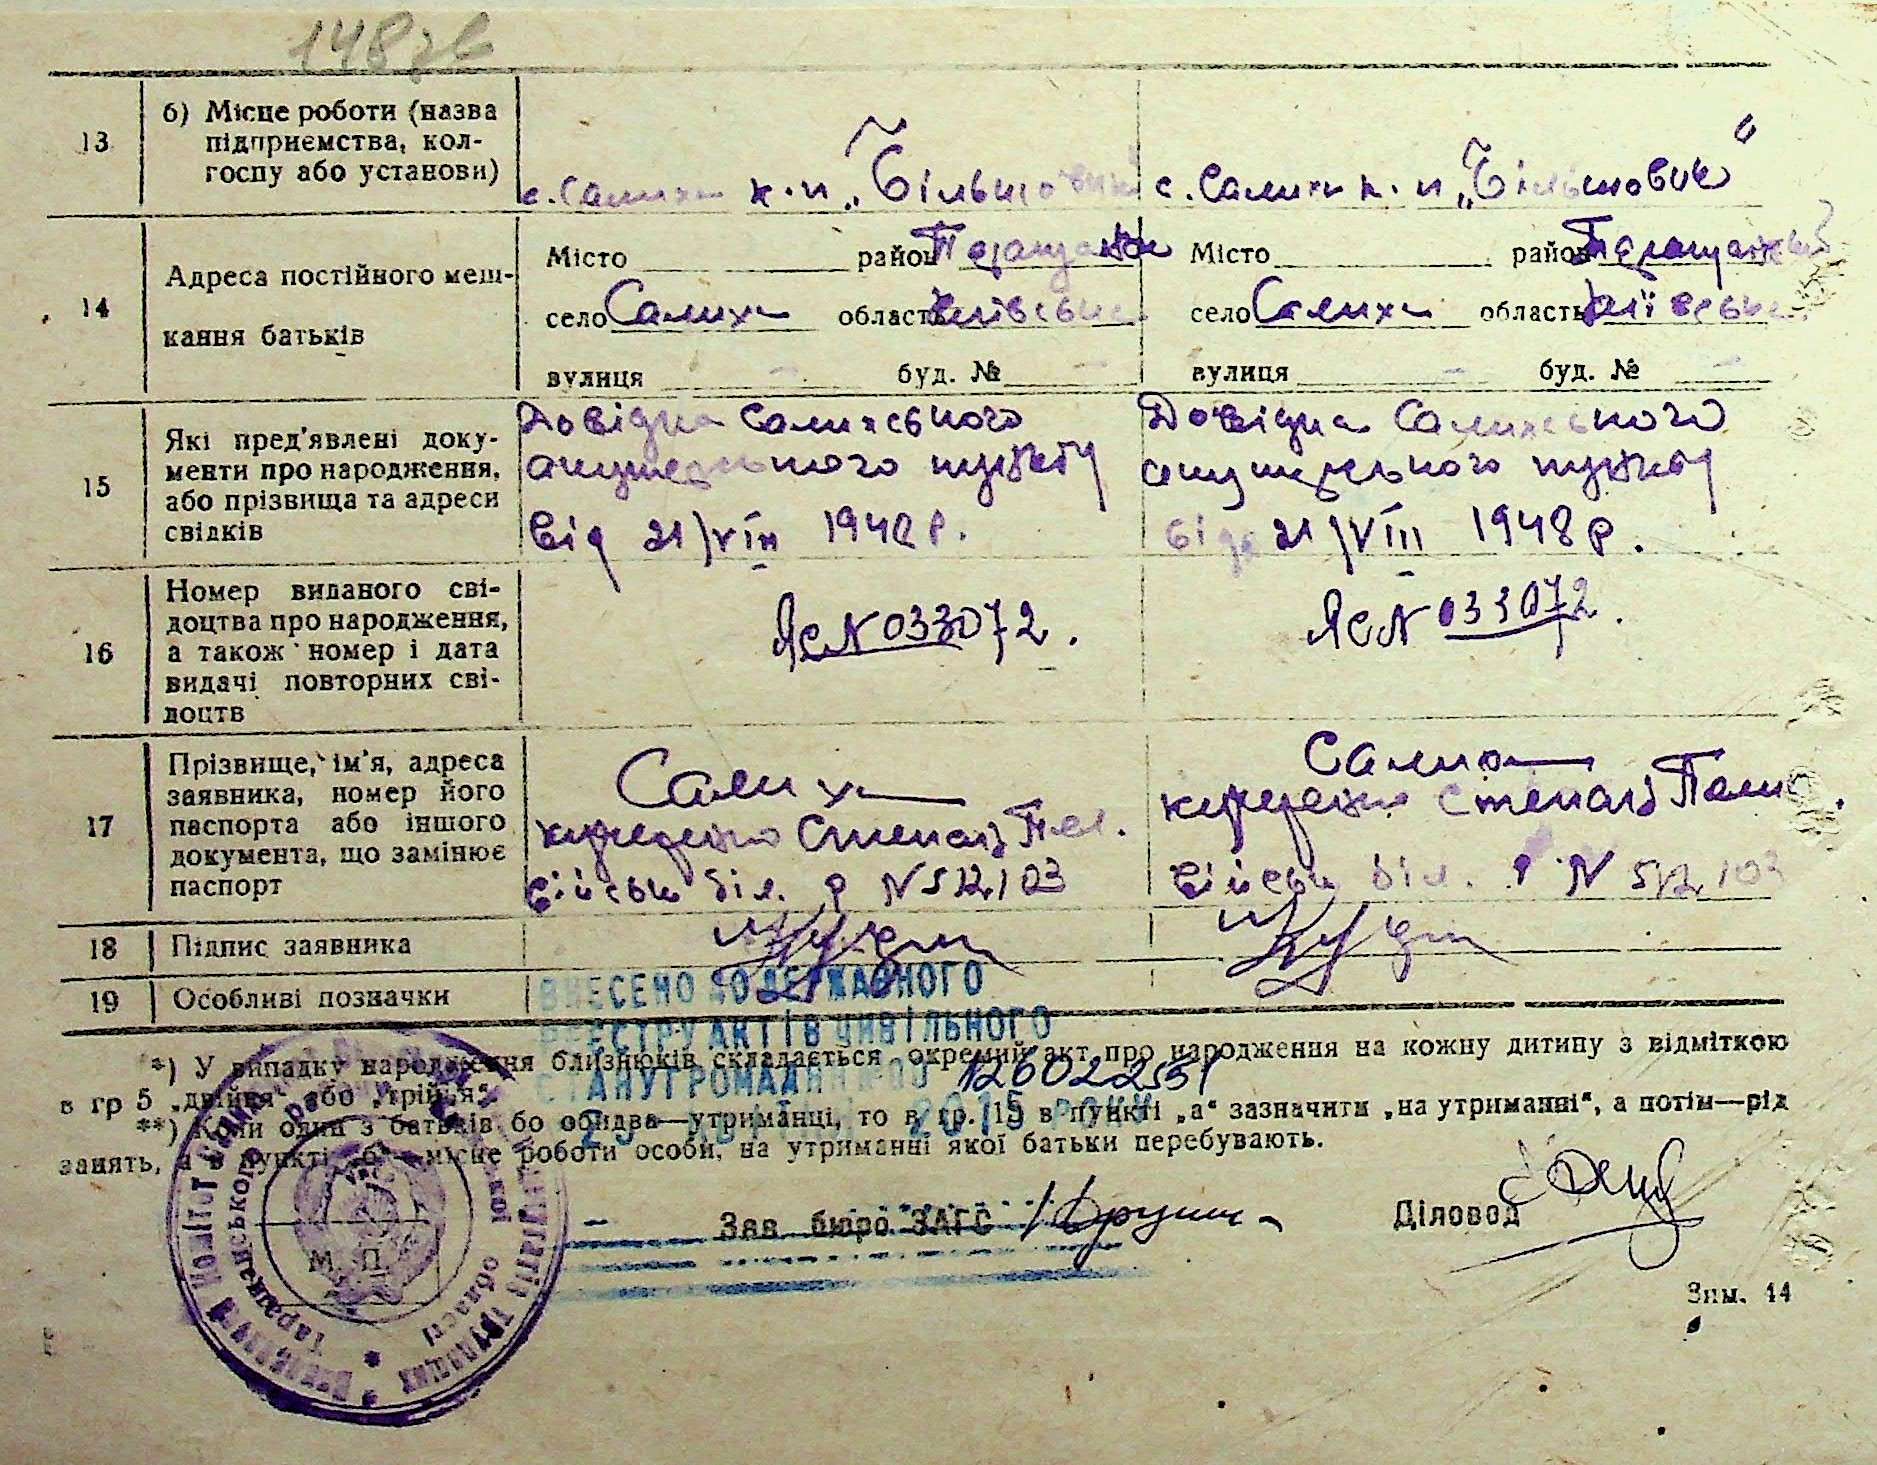 148 зв
13
б) Місце роботи (назва
підприємства, кол-
госпу або установи)
с. Салиха к.п „Більшовик“
с. Салиха к. п „Більшовик“
14
Адреса постійного меш-
кання батьків
Місто район Таращанськ
село Салиха область Київська
вулиця - буд. № -
Місто район Таращанський
село Салиха область Київська
вулиця - буд. № -
15
Які пред'явлені доку-
менти про народження,
або прізвища та адреси
свідків
Довідка Салихського
акушерського пункту
від 21/VIII 1948 р.
Довідка Салихського
акушерського пункту
від 21/VIII 1948 р.
16
Номер виданого сві-
доцтва про народження,
а також номер і дата
видачі повторних сві-
доцтв
ЯС № 033072.
ЯС № 033072.
17
Прізвище, ім'я, адреса
заявника, номер його
паспорта або іншого
документа, що замінює
паспорт
Салиха
Степан
військ біл. Р N 512103
Салиха
Степан
військ біл. Р N 512103
18
Підпис заявника
19
Особливі позначки
ВНЕСЕНО ДО ДЕРЖАВНОГО
РЕЄСТРУ АКТІВ ЦИВІЛЬНОГО
СТАНУ ГРОМАДЯН
2015 РОКУ
*) У випадку народження близнюків складається окремий акт про народження на кожну дитину з відміткою
в гр 5 „двійня“ або „трійня“.
**) Коли один з батьків бо обидва—утриманці, то в гр. 13 в пункті „а“ зазначити „на утриманні“, а потім—рід
занять, а в пункті „б“—місце роботи особи, на утриманні якої батьки перебувають.
Зав бюро ЗАГС
Діловод
М. П.
Виконавчий Комітет
Таращанського районної
депутатів трудящих
області
Зим. 44